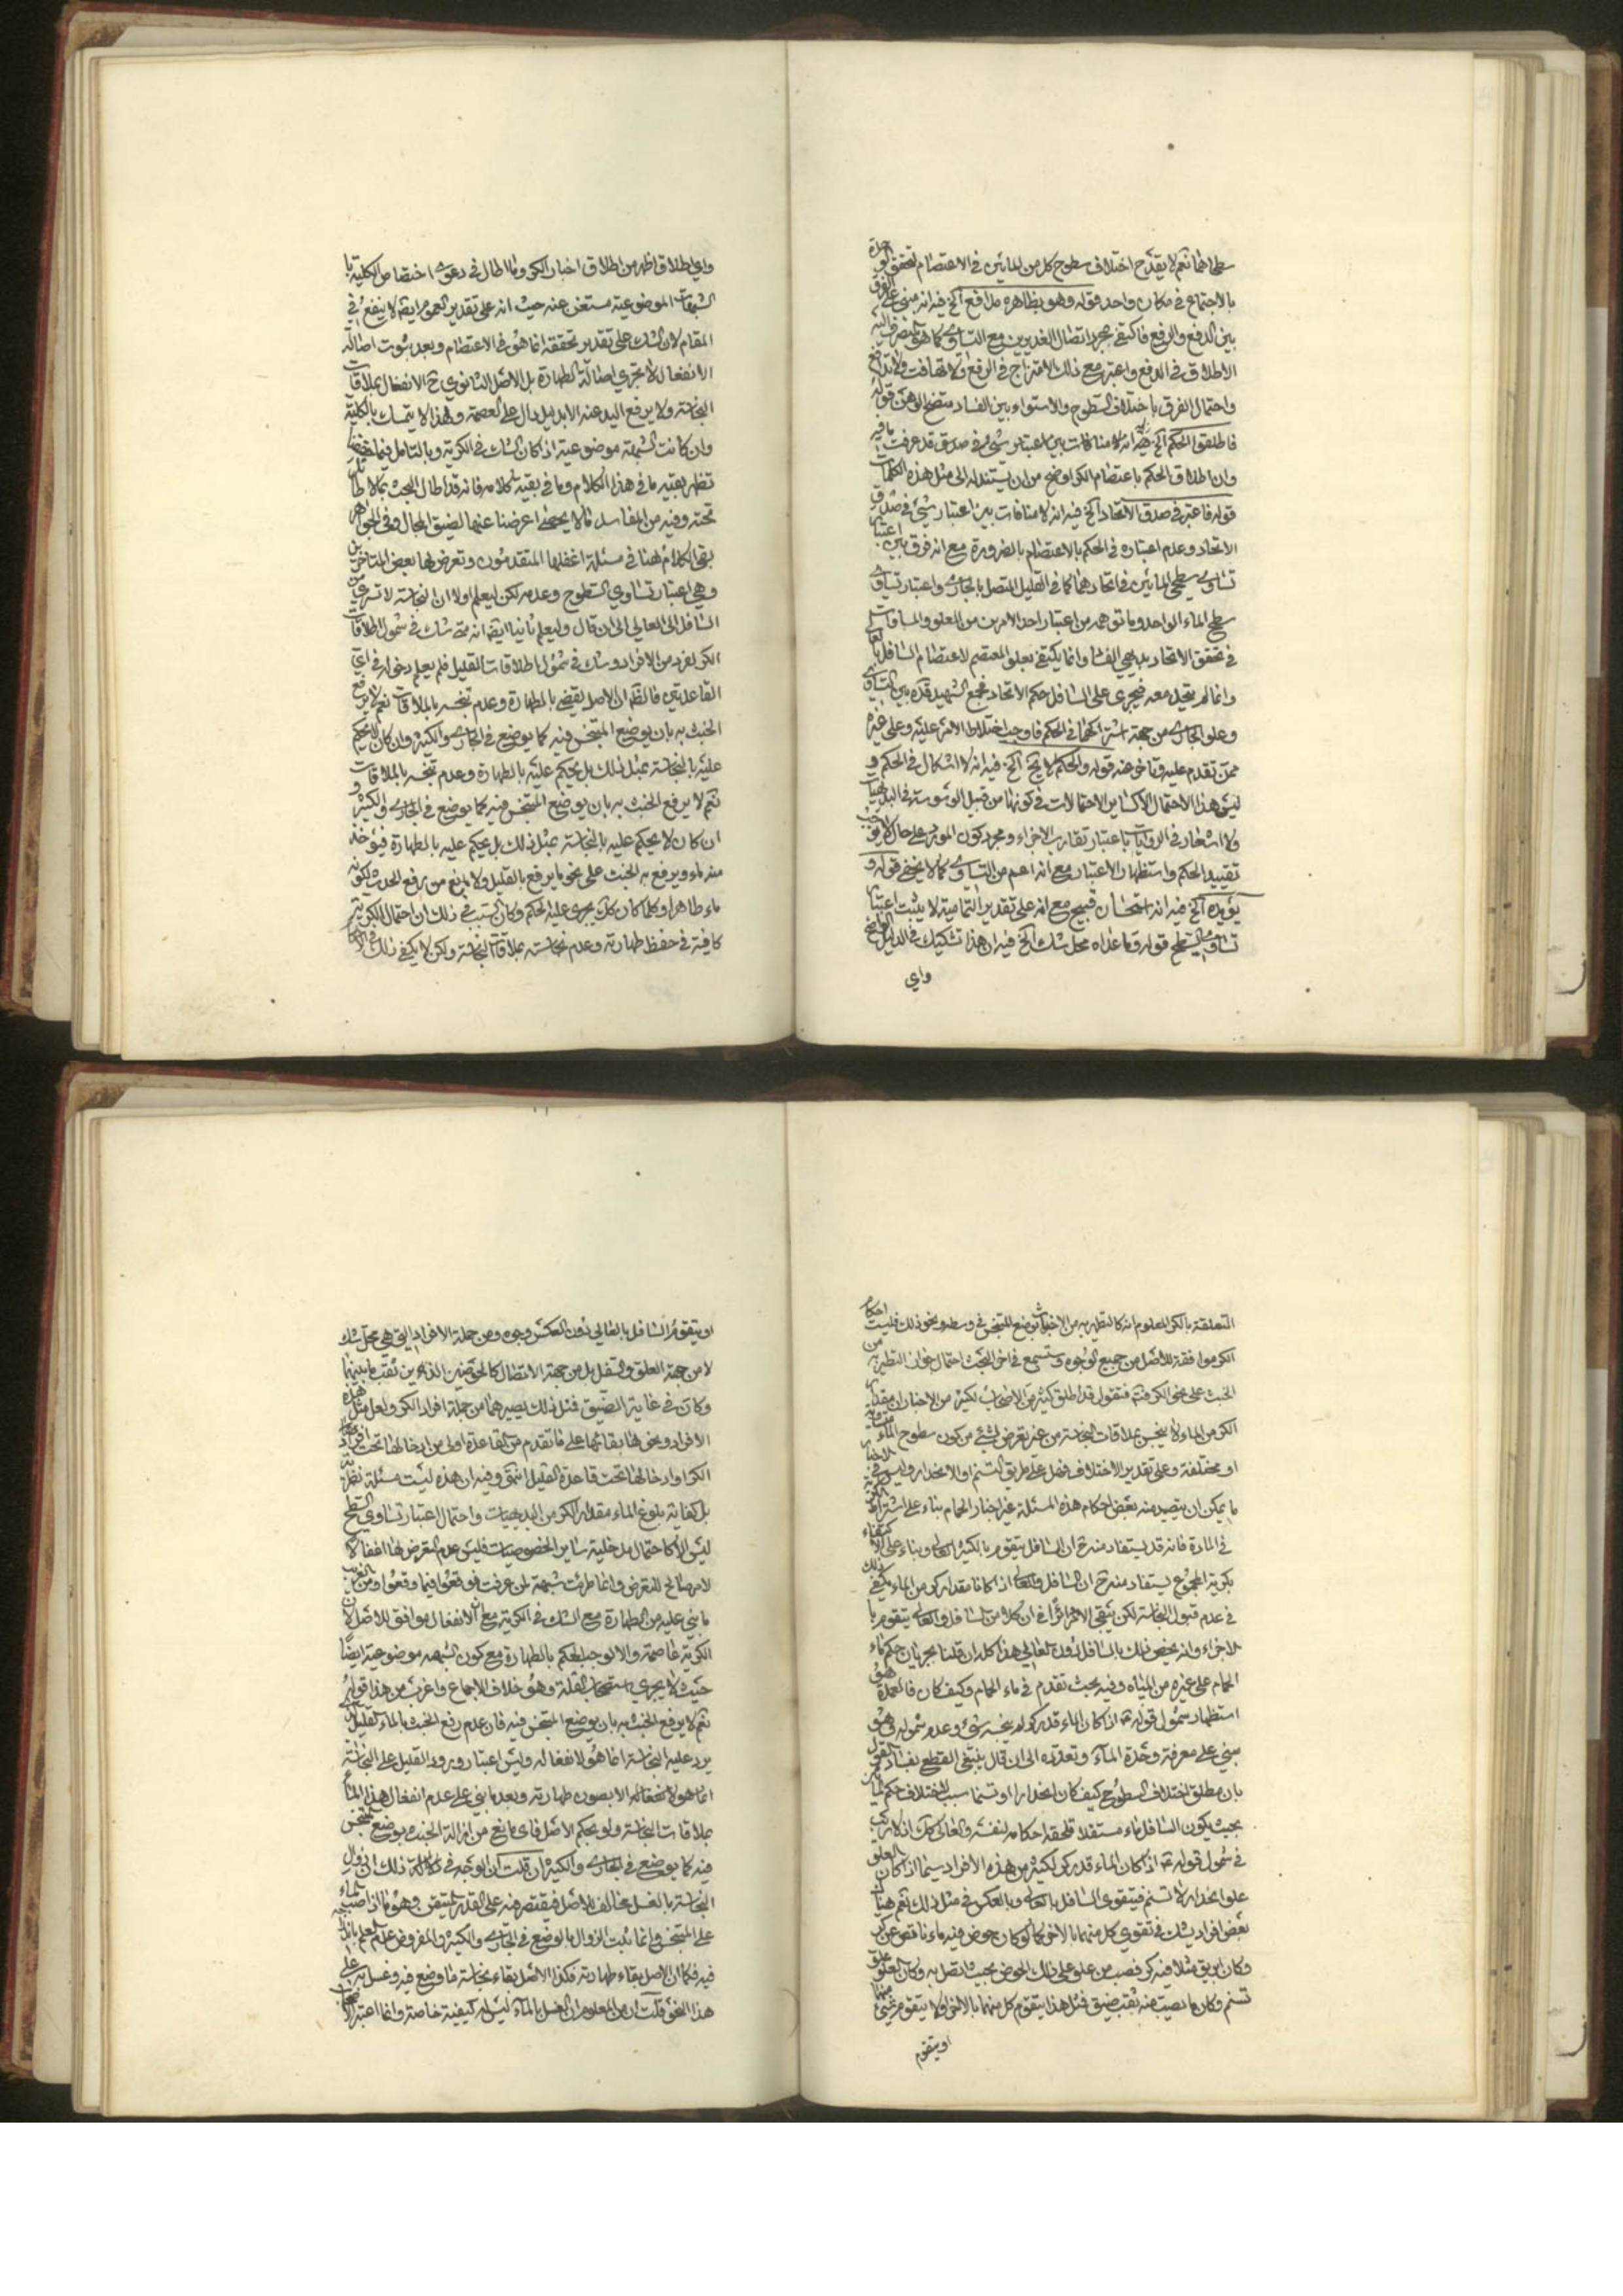 سطحاهما نعم لا يقدح اختلاف سطوح كل من المائين في الاعتصام لتحقق الوحدة
بالاجتماع في مكان واحد قوله وهو بظاهره مدافع الخ فيه انه مبني على الفرق
بين الدفع والرفع فاكتفى بمجرد اتصال الغديرين مع التساوي كما هو
الاطلاق في الدفع واعتبر مع ذلك الامتزاج في الرفع ولا تهافت ولا تدافع
واحتمال الفرق باختلاف السطوح والاستواء بين الفساد قوله
فاطلقوا الحكم الخ فيه انه لا منافات بين اعتبار شيء في صدق قد عرفت ما فيه
وان اطلاق الحكم باعتصام الكر اوضح من ان يستند له الى مثل هذه الكلمات
قوله فاعتبر في صدق الاتحاد الخ فيه انه لا منافات بين اعتبار شيء في صدق
الاتحاد وعدم اعتباره في الحكم بالاعتصام بالضرورة مع انه فرق بين اعتبار
تساوي سطحي المائين في اتحادهما كما في القليل المتصل بالجاري واعتبار تساوي
سطح الماء الواحد وما توهمه من اعتبار احد الامرين من العلو والمساوات
في تحقق الاتحاد بديهي الفساد وانما يكتفى بعلو المعتصم لاعتصام السافل
وانما لم يتحد معه فيجري على السافل حكم الاتحاد فجمع الشهيد قده بين التساوي
وعلو الجاري من جهة اشتراكهما في الحكم فاوجب اختلاط الامر عليه وعلى غيره
ممن تقدم عليه وتاخر عنه قوله والحكم لا يخ الخ فيه انه لا اشكال في الحكم و
ليس هذا الاحتمال الا كساير الاحتمالات في كونها من قبيل الوسوسة في البديهيات
ولا اشعار في الروايات باعتبار تقارب الاجزاء ومجرد كون المورد على حال لا يوجب
تقييد الحكم واستظهار الاعتبار مع انه اعم من التساوي كما لا يخفى قوله و
يؤيده الخ فيه انه استحسان قبيح مع انه على تقدير التمامية لا يثبت اعتبار
تساوي السطح قوله وما عداه محل شك الخ فيه ان هذا تشكيك في الدليل الواضح
واي
واي اطلاق اظهر من اطلاق اخبار الكر وما اطال في دعوى اختصاص الكلية با
لشبهات الموضوعية مستغن عنه حيث انه على تقدير العموم ايضا لا ينفع في
المقام لان الشك على تقدير تحققه انما هو في الاعتصام وبعد ثبوت اصالة
الانفعال لا تجري اصالة الطهارة بل الاصل الثانوي ح الانفعال بملاقات
النجاسة ولا يرفع اليد عنه الا بدليل دال على العصمة ولهذا لا يتمسك بالكلية
وان كانت الشبهة موضوعية اذا كان الشك في الكرية وبالتامل فيما
تظهر بقية ما في هذا الكلام وما في بقية كلامه فانه قد اطال البحث بما لا طائل
تحته وفيه من المفاسد ما لا يحصى اعرضنا عنها لضيق المجال وفي الجواهر
بقي الكلام هنا في مسئلة اغفلها المتقدمون وتعرض لها بعض المتاخرين
وهي اعتبار تساوي السطوح وعدمه لكن ليعلم اولا ان النجاسة لا تسري من
السافل الى العالي الى ان قال وليعلم ثانيا ايضا انه متى شك في شمول اطلاقات
الكر لفرد من الافراد وشك في شمول اطلاقات القليل فلم يعلم دخوله في اي
القاعدتين فالظاهر ان الاصل يقضي بالطهارة وعدم تنجسه بالملاقات نعم لا يرفع
الخبث به بان يوضع المتنجس فيه كما يوضع في الجاري والكثير وان كان لا يحكم
عليه بالنجاسة بمثل ذلك بل يحكم عليه بالطهارة وعدم تنجسه بالملاقات
نعم لا يرفع الخبث به بان يوضع المتنجس فيه كما يوضع في الجاري والكثير و
ان كان لا يحكم عليه بالنجاسة بمثل ذلك بل يحكم عليه بالطهارة فيؤخذ
منه ماء ويرفع به الخبث على نحو ما يرفع بالقليل ولا مانع من رفع الحدث به لكونه
ماء طاهرا وكلما كان كك يجري عليه الحكم وكان السبب في ذلك ان احتمال الكرية
كافية في حفظ طهارته وعدم نجاسته بملاقات النجاسة ولكن لا يكفي ذلك في الاحكام
المتعلقة بالكر للمعلوم انه كالتطهير به من الاخباث بوضع المتنجس في وسطه ونحو ذلك فليست احكام
الكر موافقة للاصل من جميع الوجوه وستسمع في اخر البحث احتمال جواز التطهير به من
الخبث على نحو الكر فتم فنقول قد اطلق كثير من الاصحاب لكثير من الاخبار ان مقدار
الكر من الماء لا ينجس بملاقات النجاسة من غير تعرض لشيء من كون سطوح الماء متساوية
او مختلفة وعلى تقدير الاختلاف فهل على طريق التسنم او الانحدار وليس في الاخبار
ما يمكن ان يتصيد منه بعض احكام هذه المسئلة غير اخبار الحمام بناء على اشتراط الكرية
في المادة فانه قد يستفاد منه ح ان السافل يتقوم بالكثير العالي وبناء على الاكتفاء
بكرية المجموع يستفاد منه ح ان السافل والعالي اذا كانا مقدار كر من الماء يكفي ذلك
في عدم قبول النجاسة لكن يبقى الامر في ان كلا من السافل والعالي يتقوم با
لاجزاء وانه يخص ذلك بالسافل دون العالي هذا كله ان قلنا بجريان حكم ماء
الحمام على غيره من المياه وفيه بحث تقدم في ماء الحمام وكيف كان فالعمدة هو
استظهار شمول قوله ع اذا كان الماء قدر كر لم ينجسه شيء وعدم شموله وهو
مبني على معرفة وحدة الماء وتعدده الى ان قال ينبغي القطع بفساد القول
بان مطلق اختلاف السطوح كيف كان انحدارا او تسنما سبب لاختلاف حكم الماء
بحيث يكون السافل ماء مستقلا تلحقه احكامه لنفسه والعالي كك اذ لا ريب
في شمول قوله ع اذا كان الماء قدر كر لكثير من هذه الافراد سيما اذا كان العلو
علو انحدار لا تسنم فيتقوى السافل بالعالي وبالعكس في مثل ذلك نعم هناك
بعض افراد يشك في تقوي كل منهما بالاخر كما لو كان حوض فيه ماء ناقص عن كر
وكان ابريق مثلا فيه كر فصب من علو على ذلك الحوض بحيث اتصل به وكان العلو علو
تسنم وكان ما يصب منه ثقب ضيق فمثل هذا يتقوم كل منهما بالاخر اولا يتقوم شيء منهما
او يتقوم
او يتقوم السافل بالعالي دون العكس وجوه ومن جملة الافراد التي هي محل شك
لا من جهة العلو والسفل بل من جهة الاتصال كالحوضين الذين ثقب ما بينهما
وكان في غاية الضيق فمثل ذلك يصيرهما من جملة افراد الكر ولعل مثل هذه
الافراد ونحوها بقائها على ما تقدم من القاعدة اولى من ادخالها تحت افراد
الكر او ادخالها تحت قاعدة القليل انتهى وفيه ان هذه ليست مسئلة نظرية
بل كفاية بلوغ الماء مقدار الكر من البديهيات واحتمال اعتبار تساوي السطح
ليس الا كاحتمال مدخلية ساير الخصوصيات فليس عدم التعرض لها اغفالا
لامر صالح للتعرض وانما طرئت شبهة لمن عرفت فوقعوا فيما وقعوا ومن الغريب
ما بني عليه من الطهارة مع الشك في الكرية مع ان الانفعال موافق للاصل لان
الكرية عاصمة والا لوجب الحكم بالطهارة مع كون الشبهه موضوعية ايضا
حيث لا يجري استصحاب القلة وهو خلاف الاجماع واغرب من هذا قوله
نعم لا يرفع الخبث به بان يوضع المتنجس فيه فان عدم رفع الخبث بالماء القليل
يرد عليه النجاسة انما هو لانفعاله وليس اعتبار ورود القليل على النجاسة
انما هو لا لبصون طهارته وبعد ما بنى على عدم انفعال هذا الماء
بملاقات النجاسة ولو بحكم الاصل فاي مانع من ازالة الخبث بوضع المتنجس
فيه كما يوضع في الجاري والكثير ان قلت ان الوجه في ذلك ان زوال
النجاسة بالغسل مخالف للاصل فيقتصر فيه على القدر المتيقن وهو ما اذا صب الماء
على المتنجس وانما ثبت الزوال بالوضع في الجاري والكثير والمفروض عدم العلم
فيه فكما ان الاصل بقاء طهارته فكذا الاصل بقاء نجاسة ما وضع فيه وغسل به على
هذا النحو قلت ان من المعلوم ان الغسل بالماء ليس له كيفية خاصة وانما اعتبر